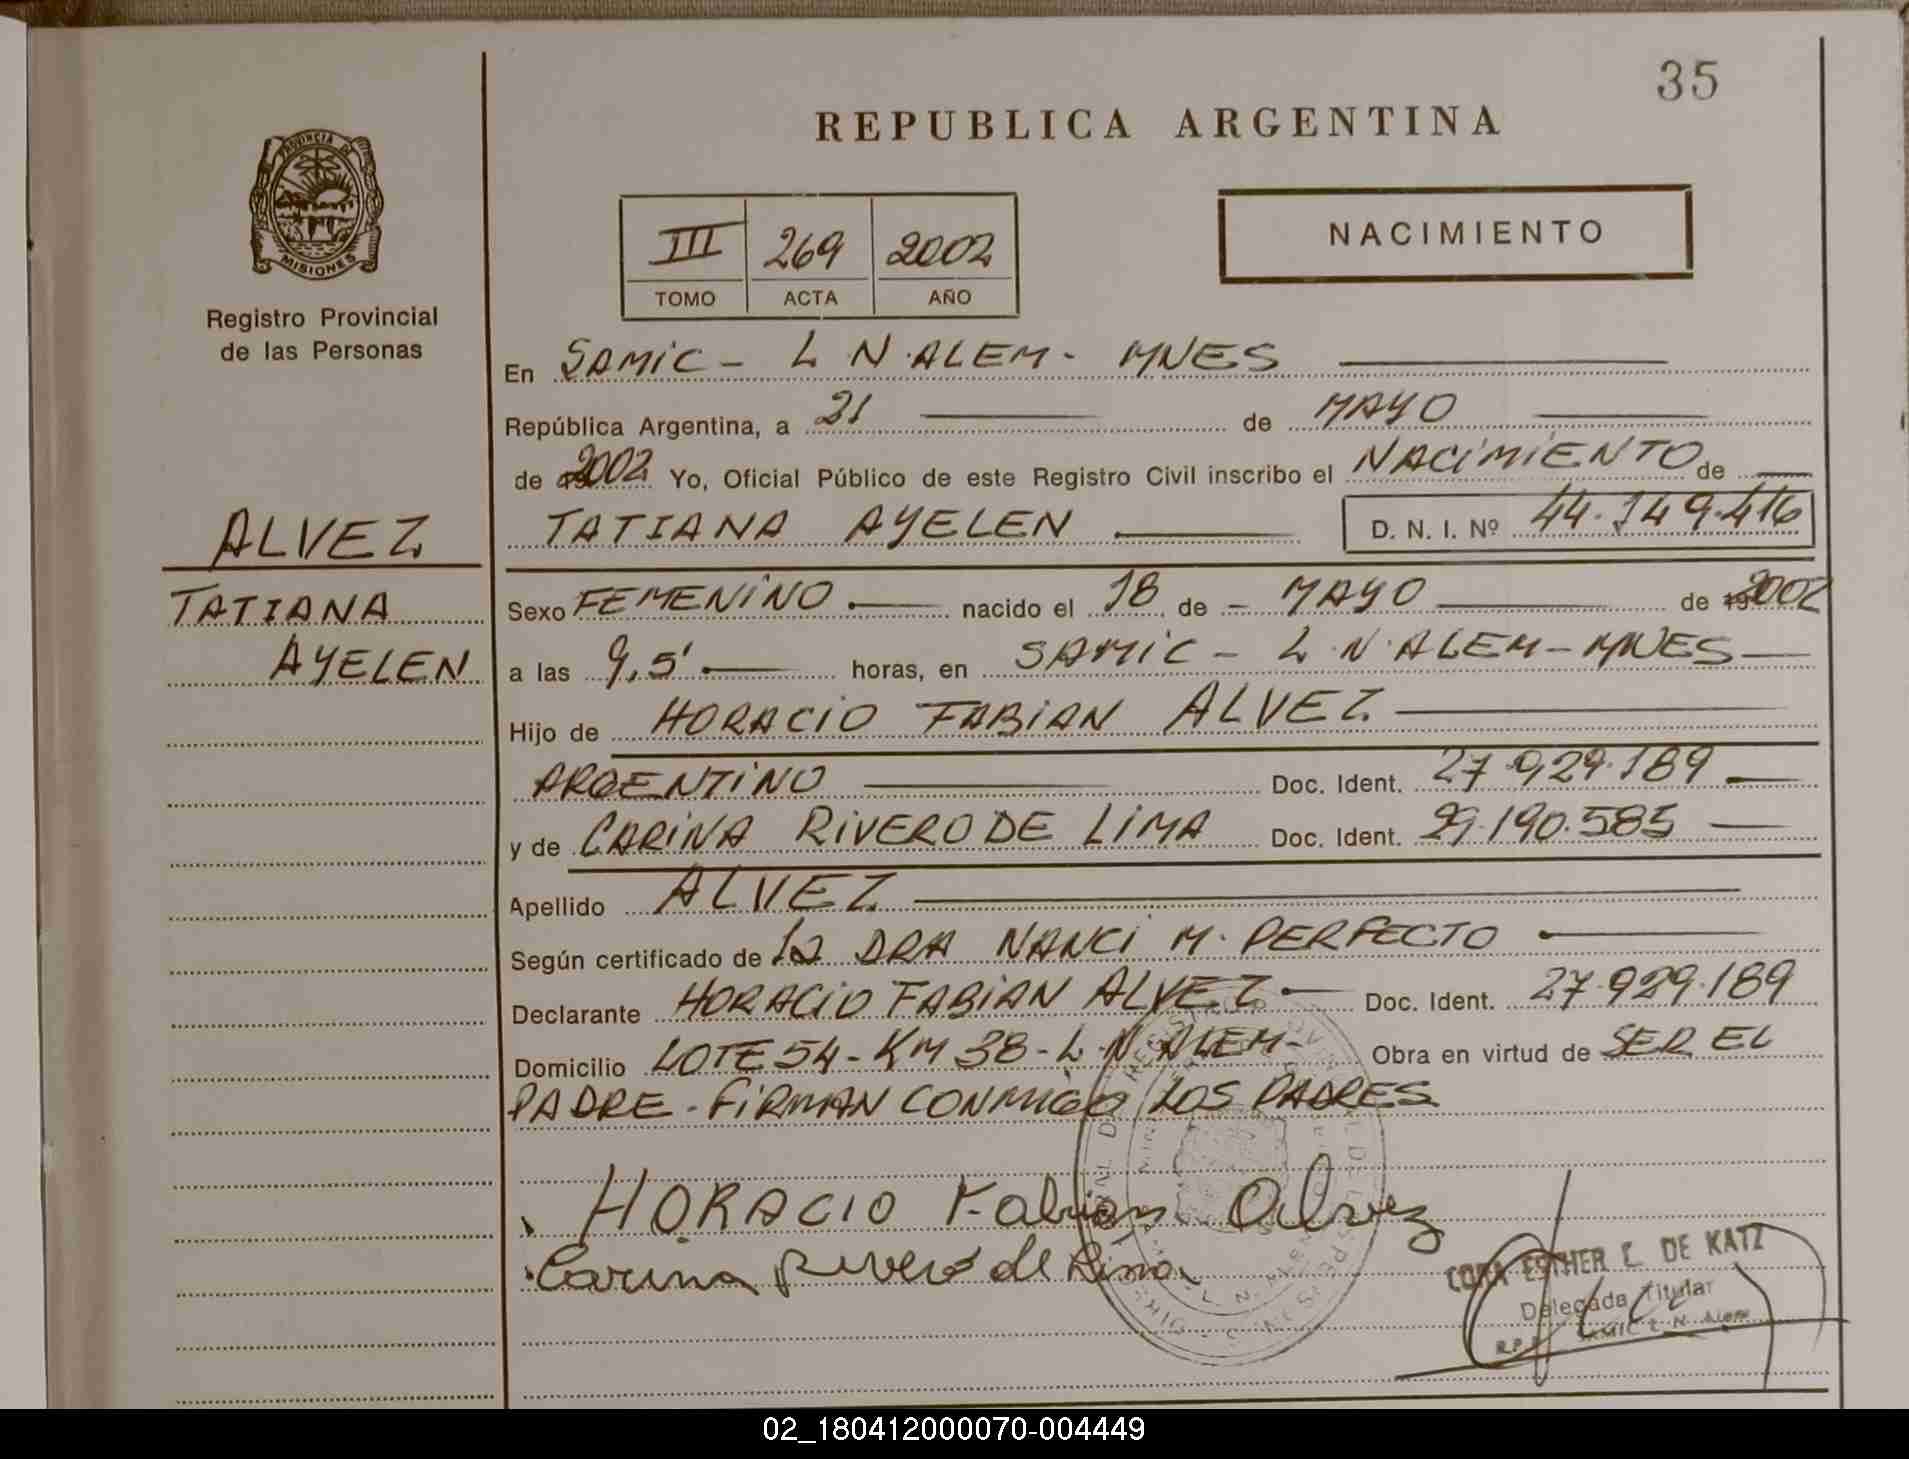 35
REPUBLICA ARGENTINA
PROVINCIA DE
MISIONES
Registro Provincial
de las Personas
III 269 2002
TOMO ACTA AÑO
NACIMIENTO
En SAMIC - L N. ALEM - MNES
República Argentina, a 21 de MAYO
de 2002 Yo, Oficial Público de este Registro Civil inscribo el NACIMIENTO de
TATIANA AYELEN D. N. I. Nº 44.149.416
ALVEZ
TATIANA
AYELEN
Sexo FEMENINO nacido el 18 de - MAYO de 2002
a las 9,5' horas, en SAMIC - L.N. ALEM - MNES
Hijo de HORACIO FABIAN ALVEZ
ARGENTINO Doc. Ident. 27.929.189
y de CARINA RIVERO DE LIMA Doc. Ident. 29.190.585
Apellido ALVEZ
Según certificado de la DRA NANCI M. PERFECTO
Declarante HORACIO FABIAN ALVEZ Doc. Ident. 27.929.189
Domicilio LOTE 54 - KM 38 - L.N. ALEM - Obra en virtud de SER EL
PADRE. FIRMAN CONMIGO LOS PADRES
HORACIO Fabian Alvez
Carina Rivero de Lima
CORA ESTHER C. DE KATZ
Delegada Titular
R.P.P. SAMIC L. N. Alem
02_180412000070-004449